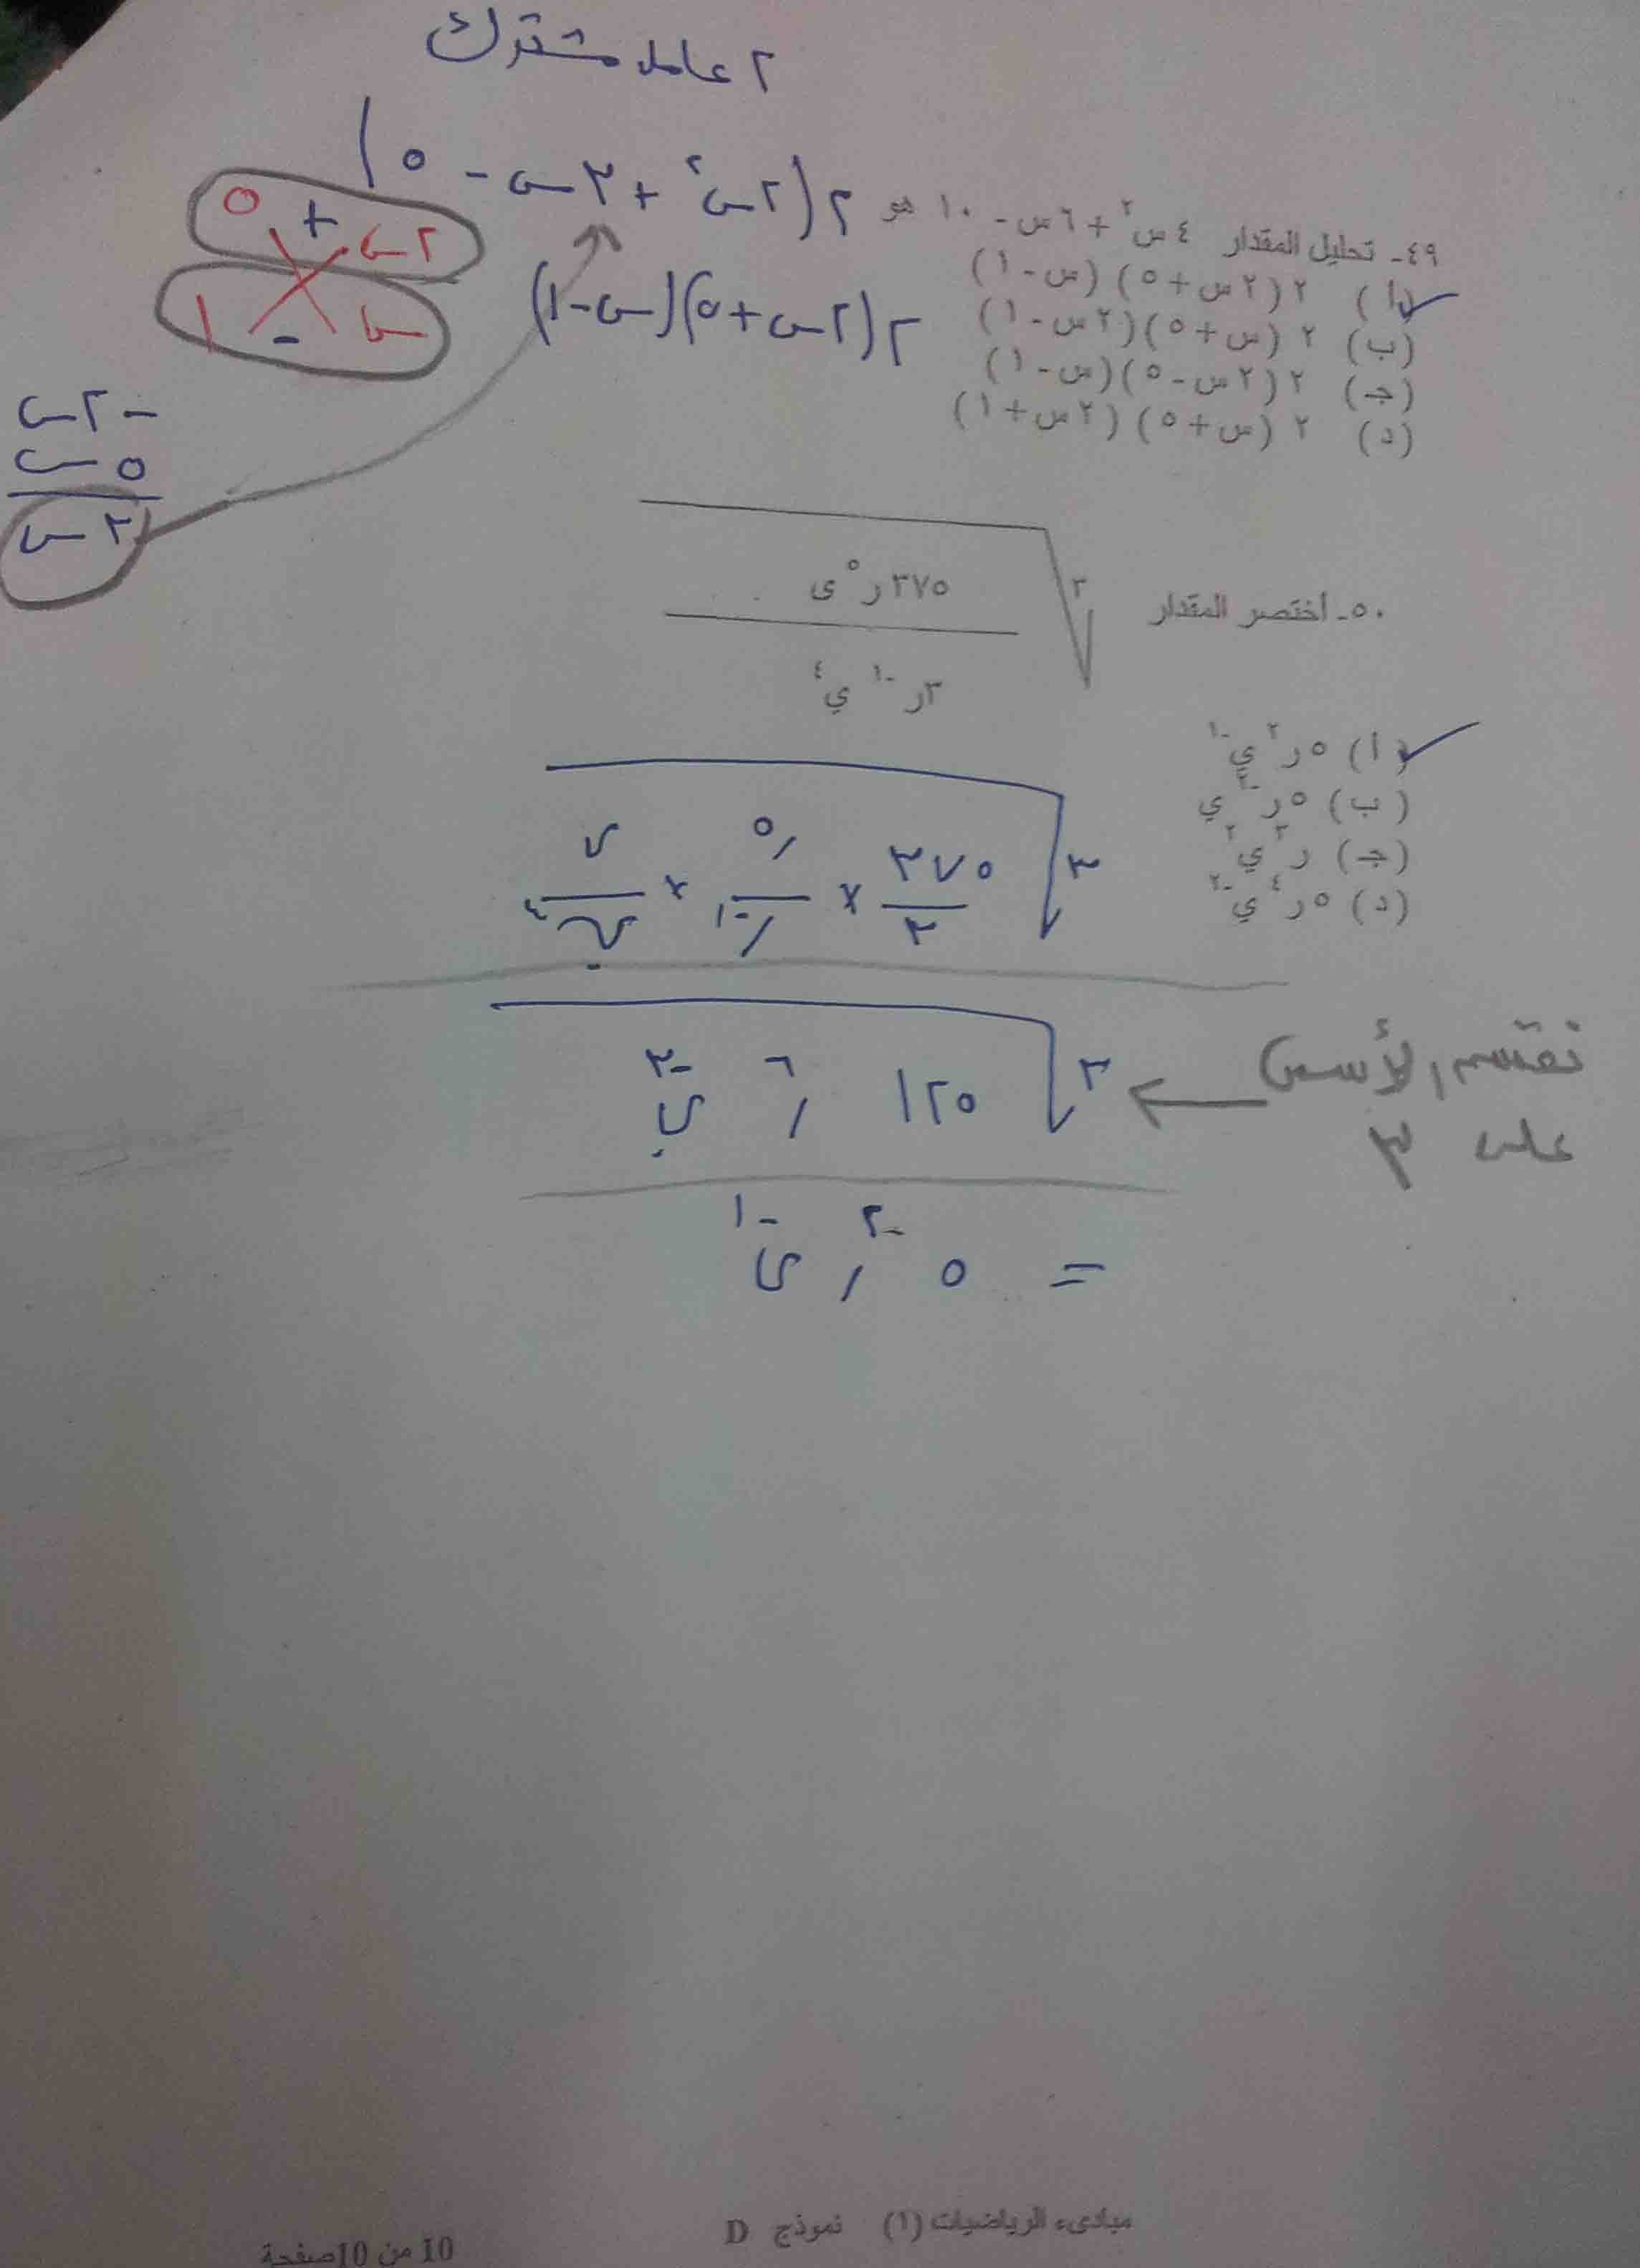 ٢ عامل مشترك
٤٩- تحليل المقدار ٤س٢ + ٦س - ١٠ هو ٢(٢س٢ + ٣س - ٥)
(أ) ٢ (٢س + ٥) (س - ١)
(ب) ٢ (س + ٥) (٢س - ١)
(ج) ٢ (٢س - ٥) (س - ١)
(د) ٢ (س + ٥) (٢س + ١)
٢(٢س + ٥)(س - ١)
٢س + ٥
س - ١
-٢س
٥س
٣س
٥٠- أختصر المقدار
٣√ ٣٧٥ر٥ى
٣ر-١ ي٤
(أ) ٥ر٢ ي-١
(ب) ٥ر-٢ ي
(ج) ر٢ ي٢
(د) ٥ر٤ ي-٢
٣√ ٣٧٥/٣ × ر٥/ر-١ × ى/ي٤
٣√ ١٢٥ ر٦ ي-٣
نقسم الأسس
على ٣
= ٥ ر-٢ ى-١
مبادىء الرياضيات (١) نموذج D
10 من 10صفحة